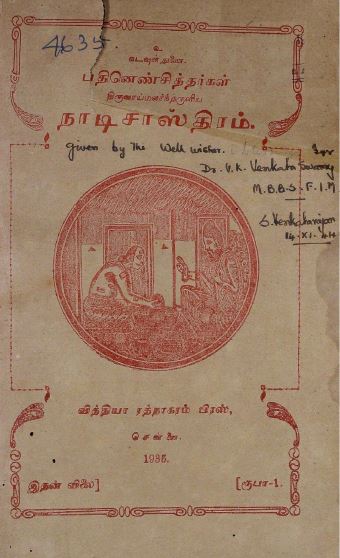 4635.
உ
கடவுள் துணை.
பதினெண்சித்தர்கள்
திருவாய்மலர்ந்தருளிய
நாடிசாஸ்திரம்.
Given by the Well wisher. for
Dr. V. K. Venkata Swamy
M.B.B.S. F.I.M
S. Venkatarajan
14.XI.44
வித்தியா ரத்நாகரம் பிரஸ்,
சென்னை.
1935.
இதன் விலை] [ரூபா-1.